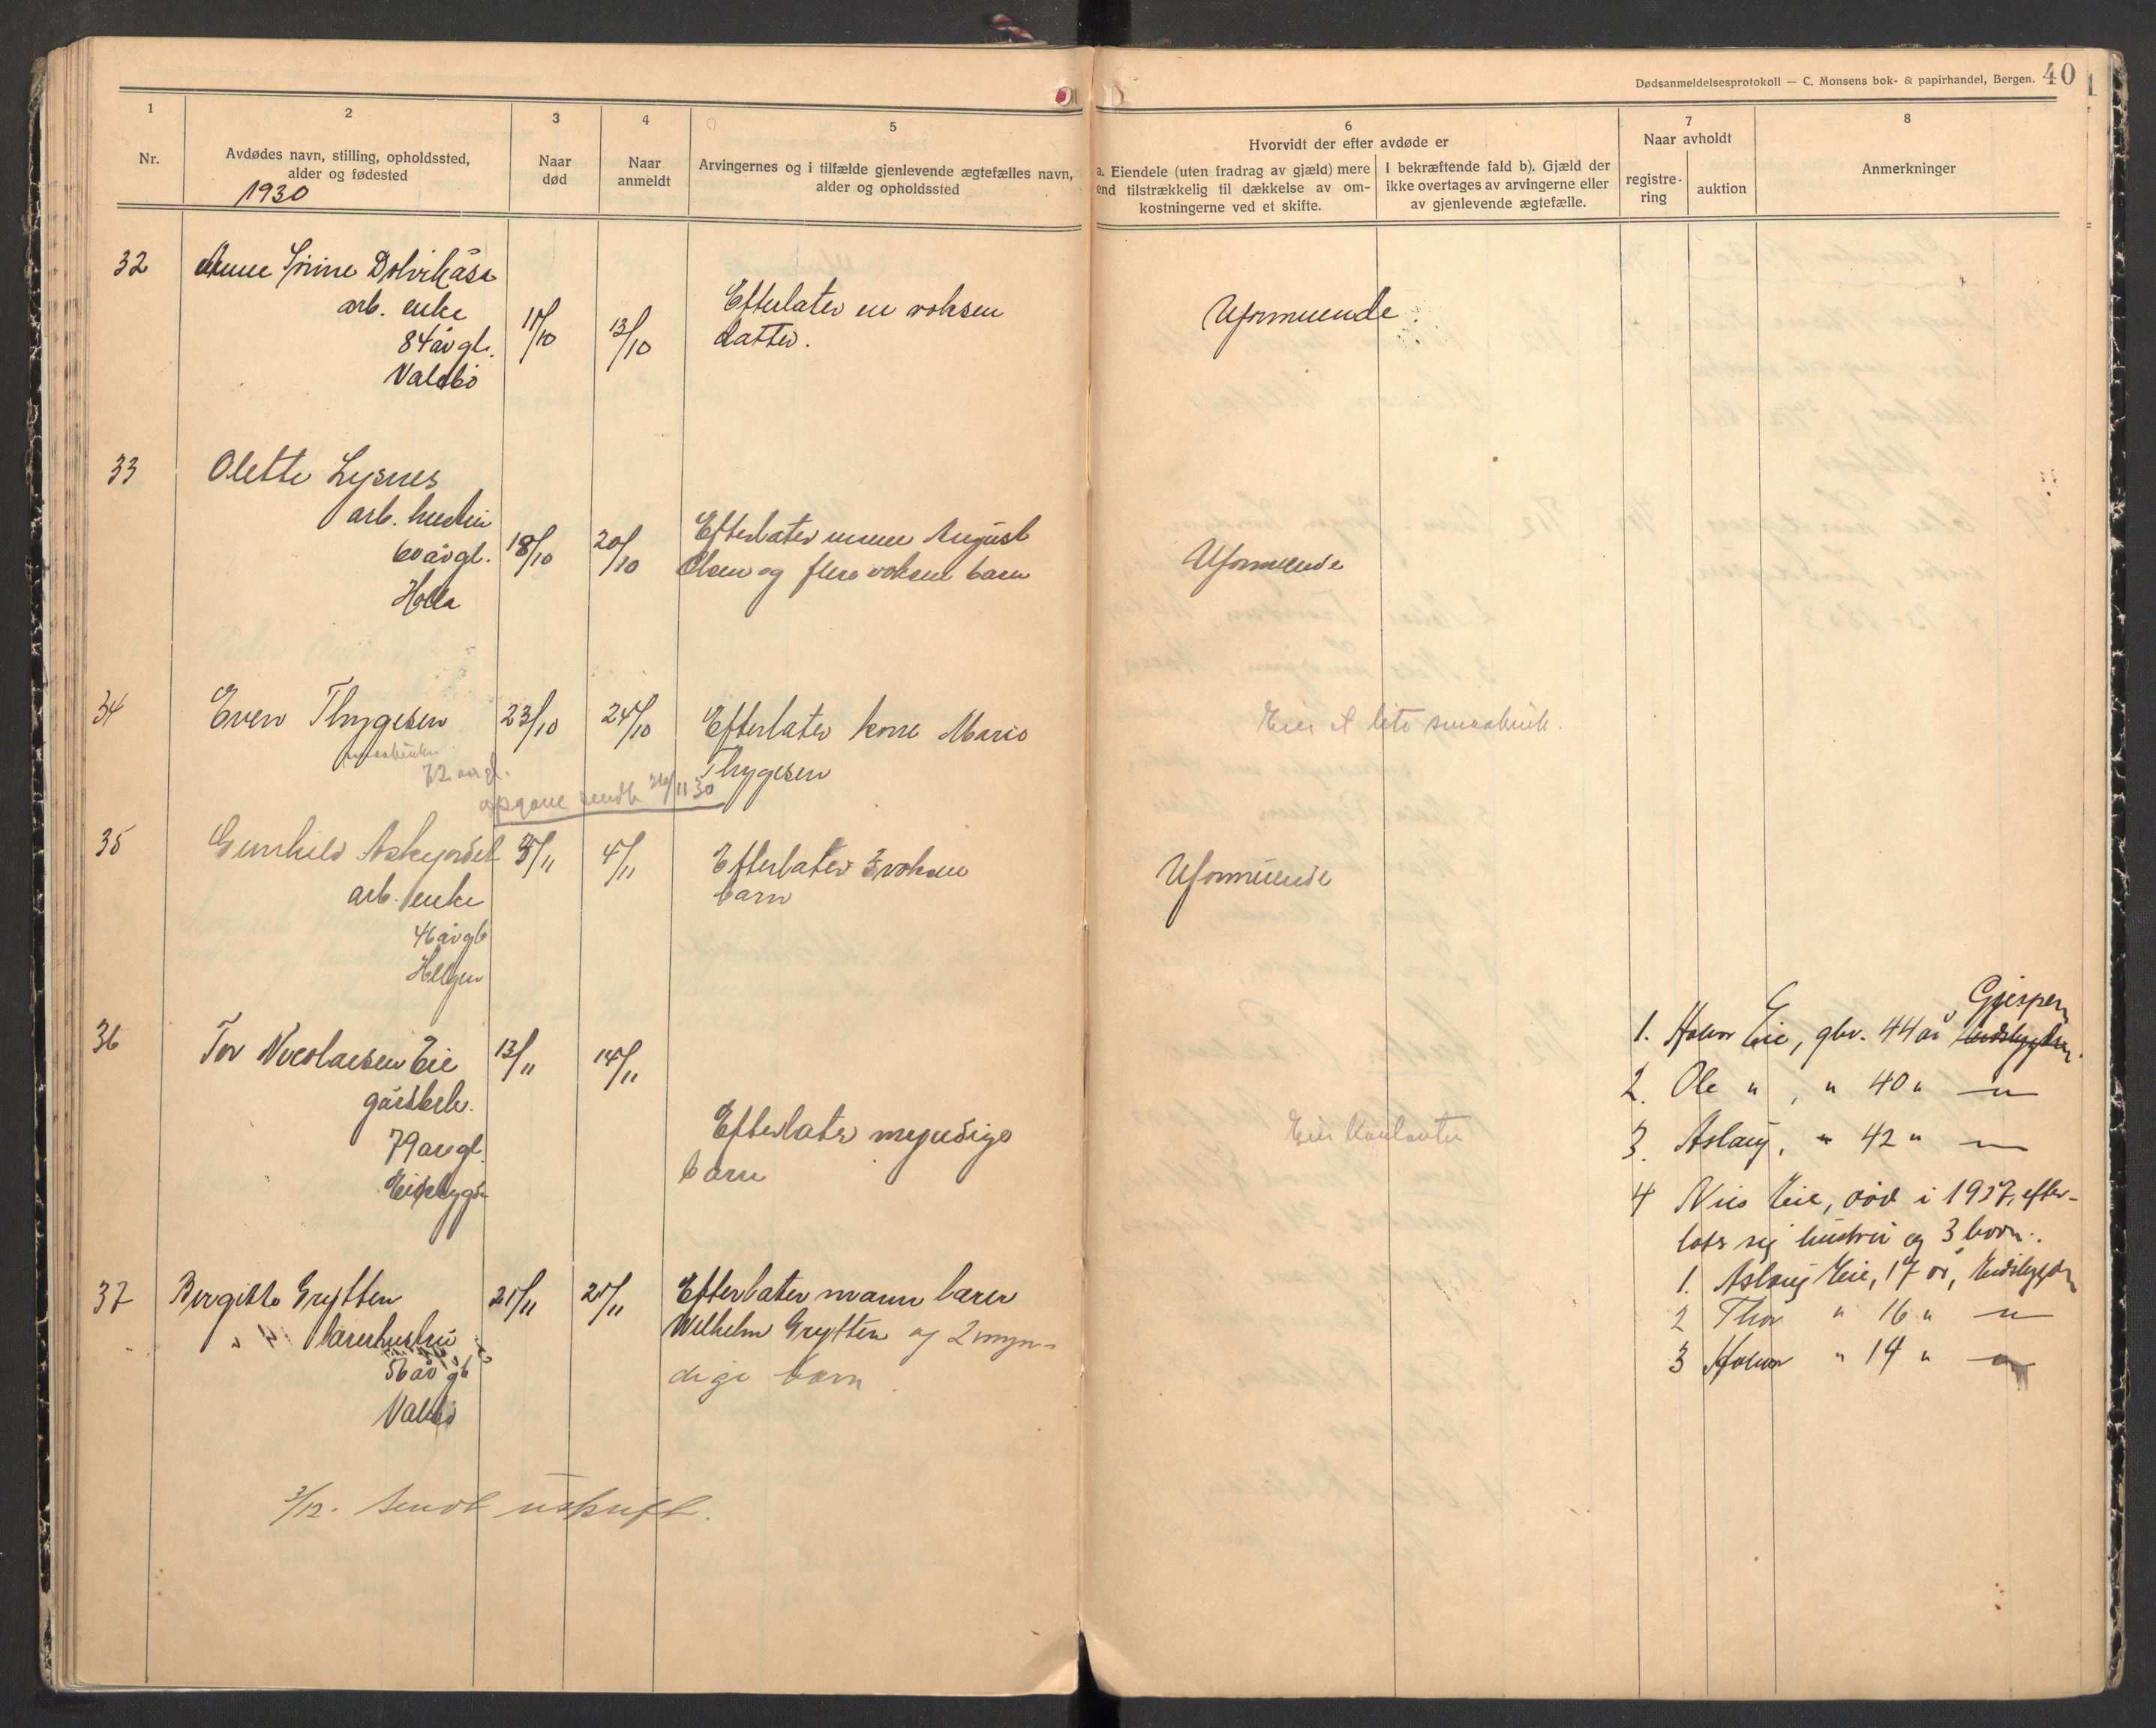 Dødsanmeldelsesprotokoll — C. Monsens bok- & papirhandel, Bergen. 40
1 2 3 4 5 6 7 8
Nr.
Avdødes navn, stilling, opholdssted,
alder og fødested
1930
Naar
død
Naar
anmeldt
Arvingernes og i tilfælde gjenlevende ægtefælles navn,
alder og opholdssted
Hvorvidt der efter avdøde er
a. Eiendele (uten fradrag av gjæld) mere
end tilstrækkelig til dækkelse av om-
kostningerne ved et skifte.
I bekræftende fald b). Gjæld der
ikke overtages av arvingerne eller
av gjenlevende ægtefælle.
Naar avholdt
registre-
ring
auktion
Anmerkninger
32 Anne
arb. enke
84 år gl.
Valebø
11/10 13/10
Efterlater en voksen
datter.
Uformuende.
33 Olette Lysnes
arb. hustru
60 år gl.
Holla
18/10 20/10
Efterlater mann August
Olsen og flere voksne barn
Uformuende
34 Even Thygesen
småbruker
72 år gl.
23/10 24/10
Efterlater kone Marie
Thygesen
Eier et lite småbruk.
opgave sendt 26/11 30
35 Gunhild
arb. enke
46 år gl
Helgen
4/11
Efterlater 3 voksne
barn
Uformuende
36 Tor Nicolaisen Eie
gårdbr.
79 år gl.
Eidsbygd
13/11 14/11
Efterlater myndige
barn
Gjerpen
1. Halvor Eie, gbr. 44 år Eidsbygden.
2. Ole " , " 40 " — " —
3. Aslaug, " 42 " — " —
4 Nils Eie, död i 1927, efter-
lots sig hustru og 3 born.
1. Aslaug Eie, 17 år, Eidsbygden
2 Thor " 16 " — " —
3 Halvor " 14 " — " —
37 Birgitte Grytten
lærerhustru
56 år gl
Valebø
21/11 25/11
Efterlater mann lærer
Wilhelm Grytten og 2 myn-
dige barn
3/12. Sendt utskrift.